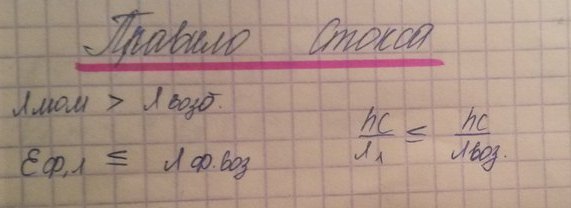 Правило Стокса
λмом > λвозб.
Eф,л ≤ λф.воз
hc/λл ≤ hc/λвоз.